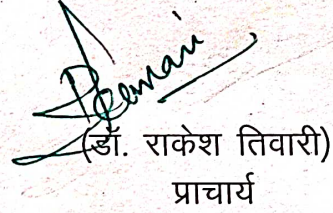 (डॉ. राकेश तिवारी)
प्राचार्य